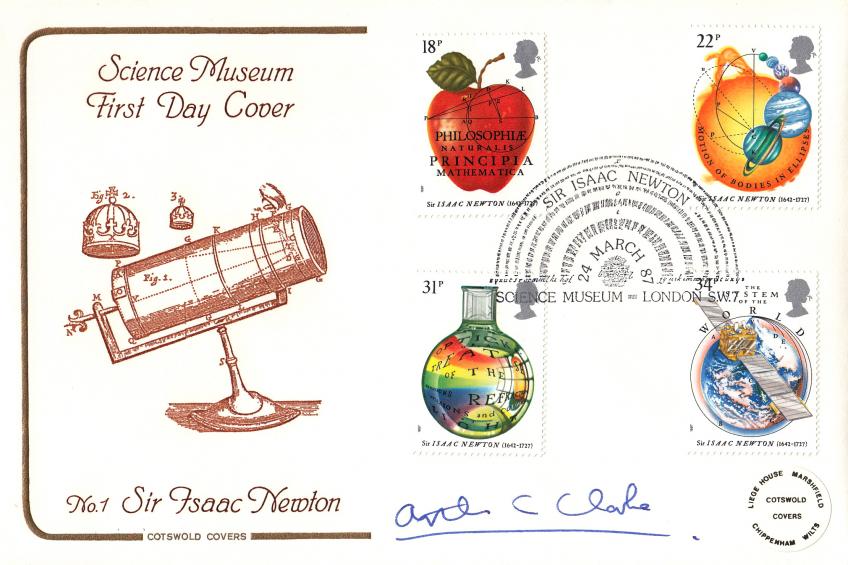 Science Museum
First Day Cover
Fig. 2.
3.
Fig. 1.
No.1 Sir Isaac Newton
COTSWOLD COVERS
18P
PHILOSOPHIÆ
NATURALIS
PRINCIPIA
MATHEMATICA
Sir ISAAC NEWTON (1642-1727)
22P
MOTION OF BODIES IN ELLIPSES
Sir ISAAC NEWTON (1642-1727)
SIR ISAAC NEWTON
24 MARCH 87
SCIENCE MUSEUM LONDON SW7
31P
OPTICKS
TREATISE
OF THE
REFL
IONS and
Sir ISAAC NEWTON (1642-1727)
34P
THE
SYSTEM
OF THE
WORLD
Sir ISAAC NEWTON (1642-1727)
Arthur C Clarke
LIEGE HOUSE MARSHFIELD
COTSWOLD
COVERS
CHIPPENHAM WILTS